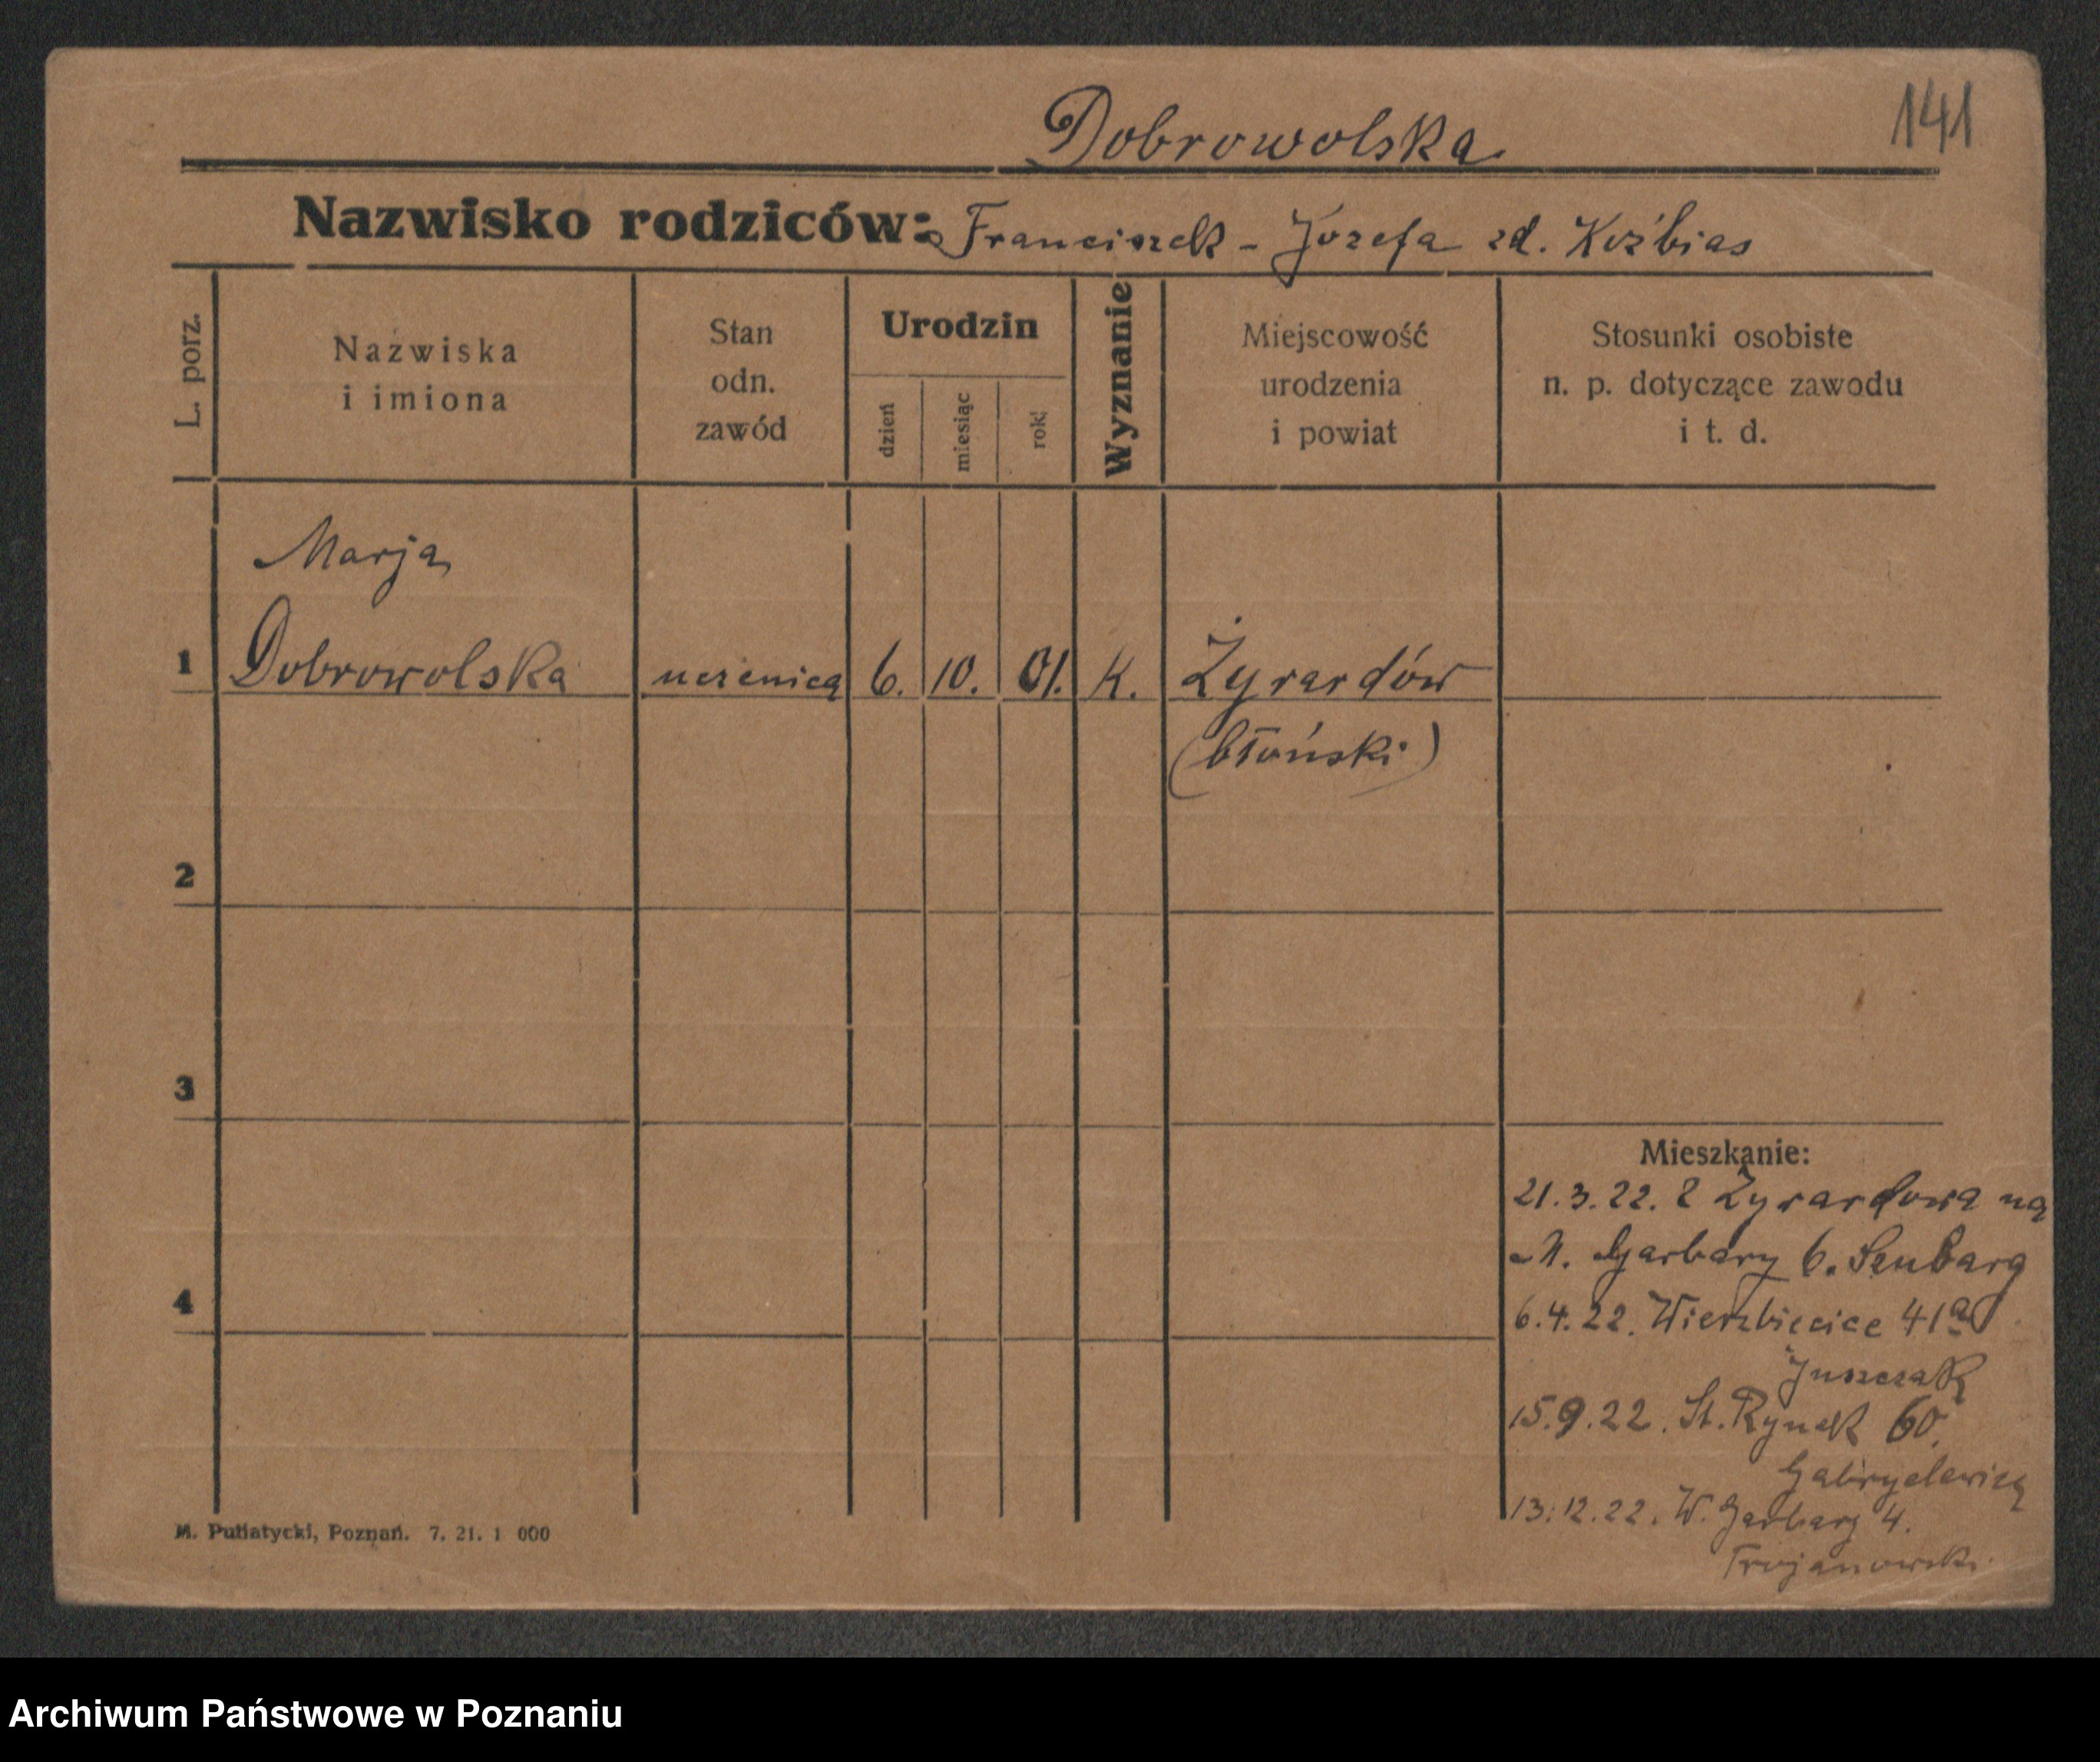 Dobrowolska
141
Nazwisko rodziców: Franciszek - Józefa zd. Koźbias
L. porz.
Nazwiska
i imiona
Stan
odn.
zawód
Urodzin
dzień
miesiąc
rok
Wyznanie
Miejscowość
urodzenia
i powiat
Stosunki osobiste
n. p. dotyczące zawodu
i t. d.
Marja
1 Dobrowolska uczenica 6. 10. 01. K. Żyrardów
(błoński)
2
3
4
Mieszkanie:
21.3.22. z Żyrardowa na
M. Garbary 6. Szubarg
6.4.22. Wierzbięcice 41a
Juszczak
15.9.22. St. Rynek 60.
Gabryelewicz
13.12.22. W. Garbary 4.
Trojanowski
M. Putiatycki, Poznań. 7. 21. 1 000
Archiwum Państwowe w Poznaniu